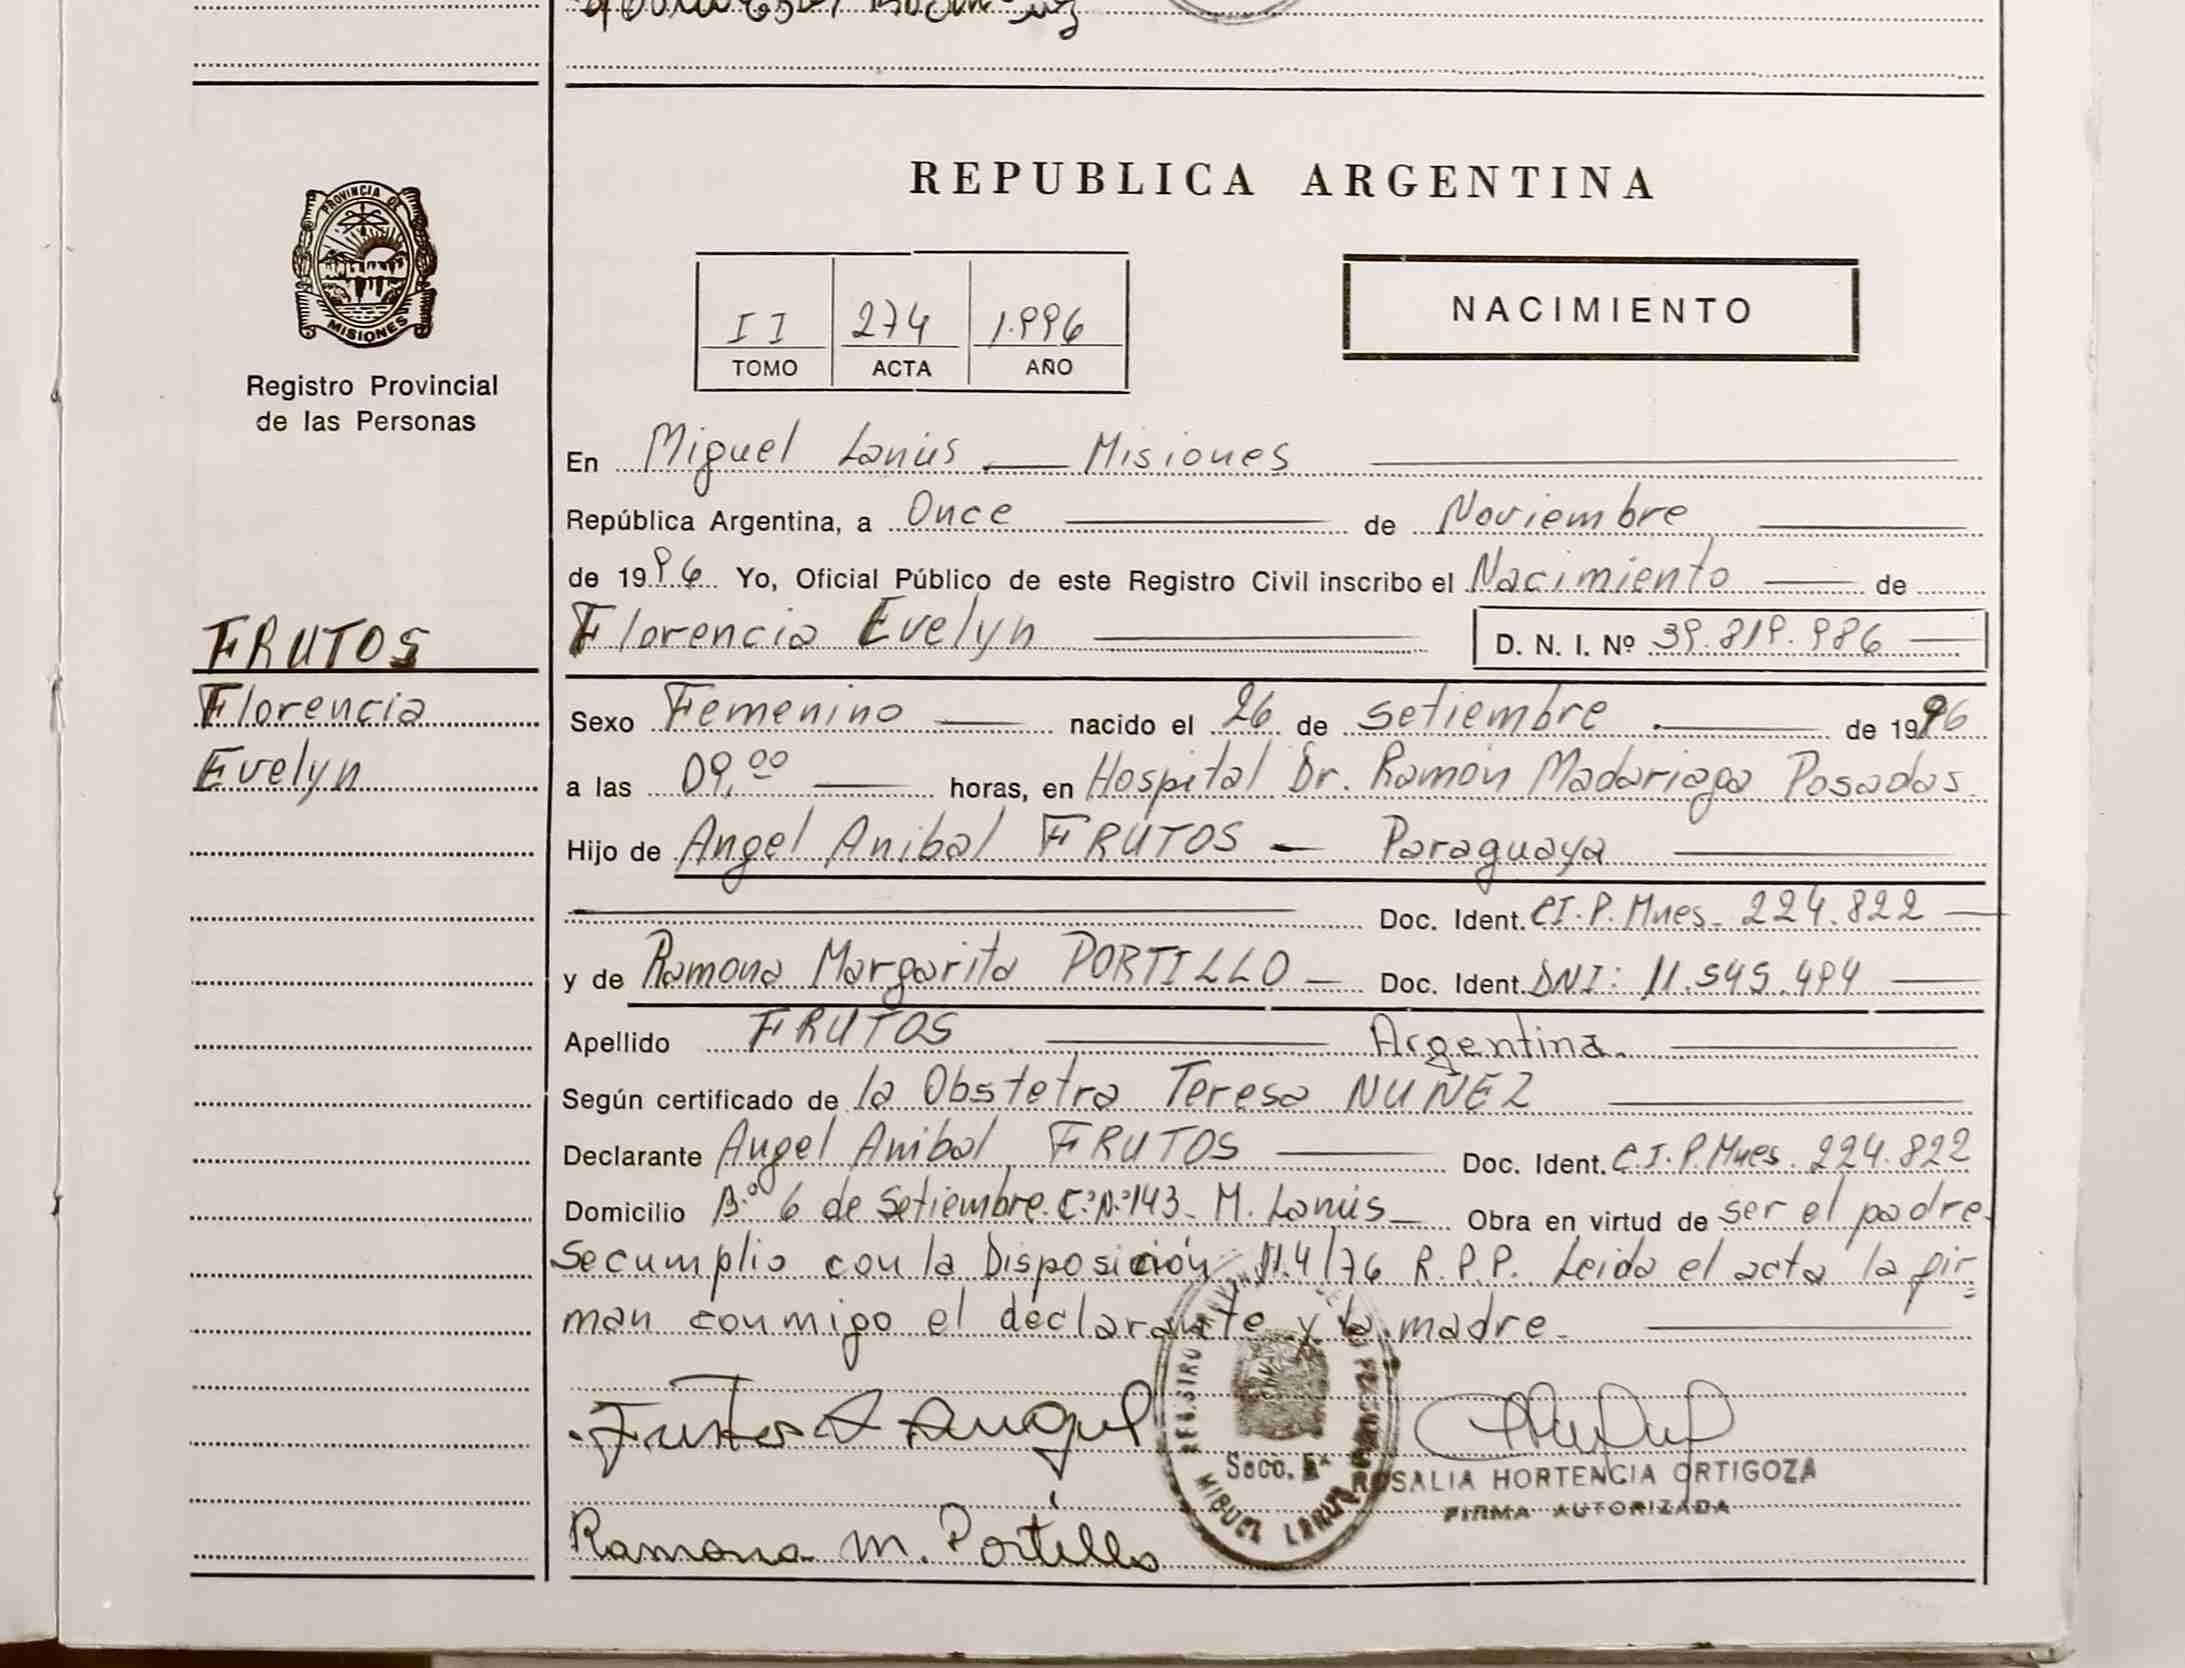 PROVINCIA DE
MISIONES
Registro Provincial
de las Personas
FRUTOS
Florencia
Evelyn
REPUBLICA ARGENTINA
II 274 1.996
TOMO ACTA AÑO
NACIMIENTO
En Miguel Lanús — Misiones
República Argentina, a Once de Noviembre
de 1996 Yo, Oficial Público de este Registro Civil inscribo el Nacimiento de
Florencia Evelyn D. N. I. Nº 39.819.986
Sexo Femenino nacido el 26 de setiembre de 1996
a las 09,00 horas, en Hospital Dr. Ramón Madariaga Posadas.
Hijo de Angel Anibal FRUTOS — Paraguaya
Doc. Ident. CI.P.Mnes. 224.822
y de Ramona Margarita PORTILLO — Doc. Ident. DNI: 11.545.494
Apellido FRUTOS Argentina.
Según certificado de la Obstetra Teresa NUÑEZ
Declarante Angel Anibal FRUTOS Doc. Ident. C.I.P.Mnes. 224.822
Domicilio B.º 6 de Setiembre. C.ª N.º 143 - M. Lanús Obra en virtud de ser el padre.
Se cumplio con la Disposición N.4/76 R.P.P. Leida el acta la fir=
man conmigo el declarante y la madre.
Frutos A Angel
Secc. 5ª
MIGUEL LANUS
ROSALIA HORTENCIA ORTIGOZA
FIRMA AUTORIZADA
Ramona M. Portillo